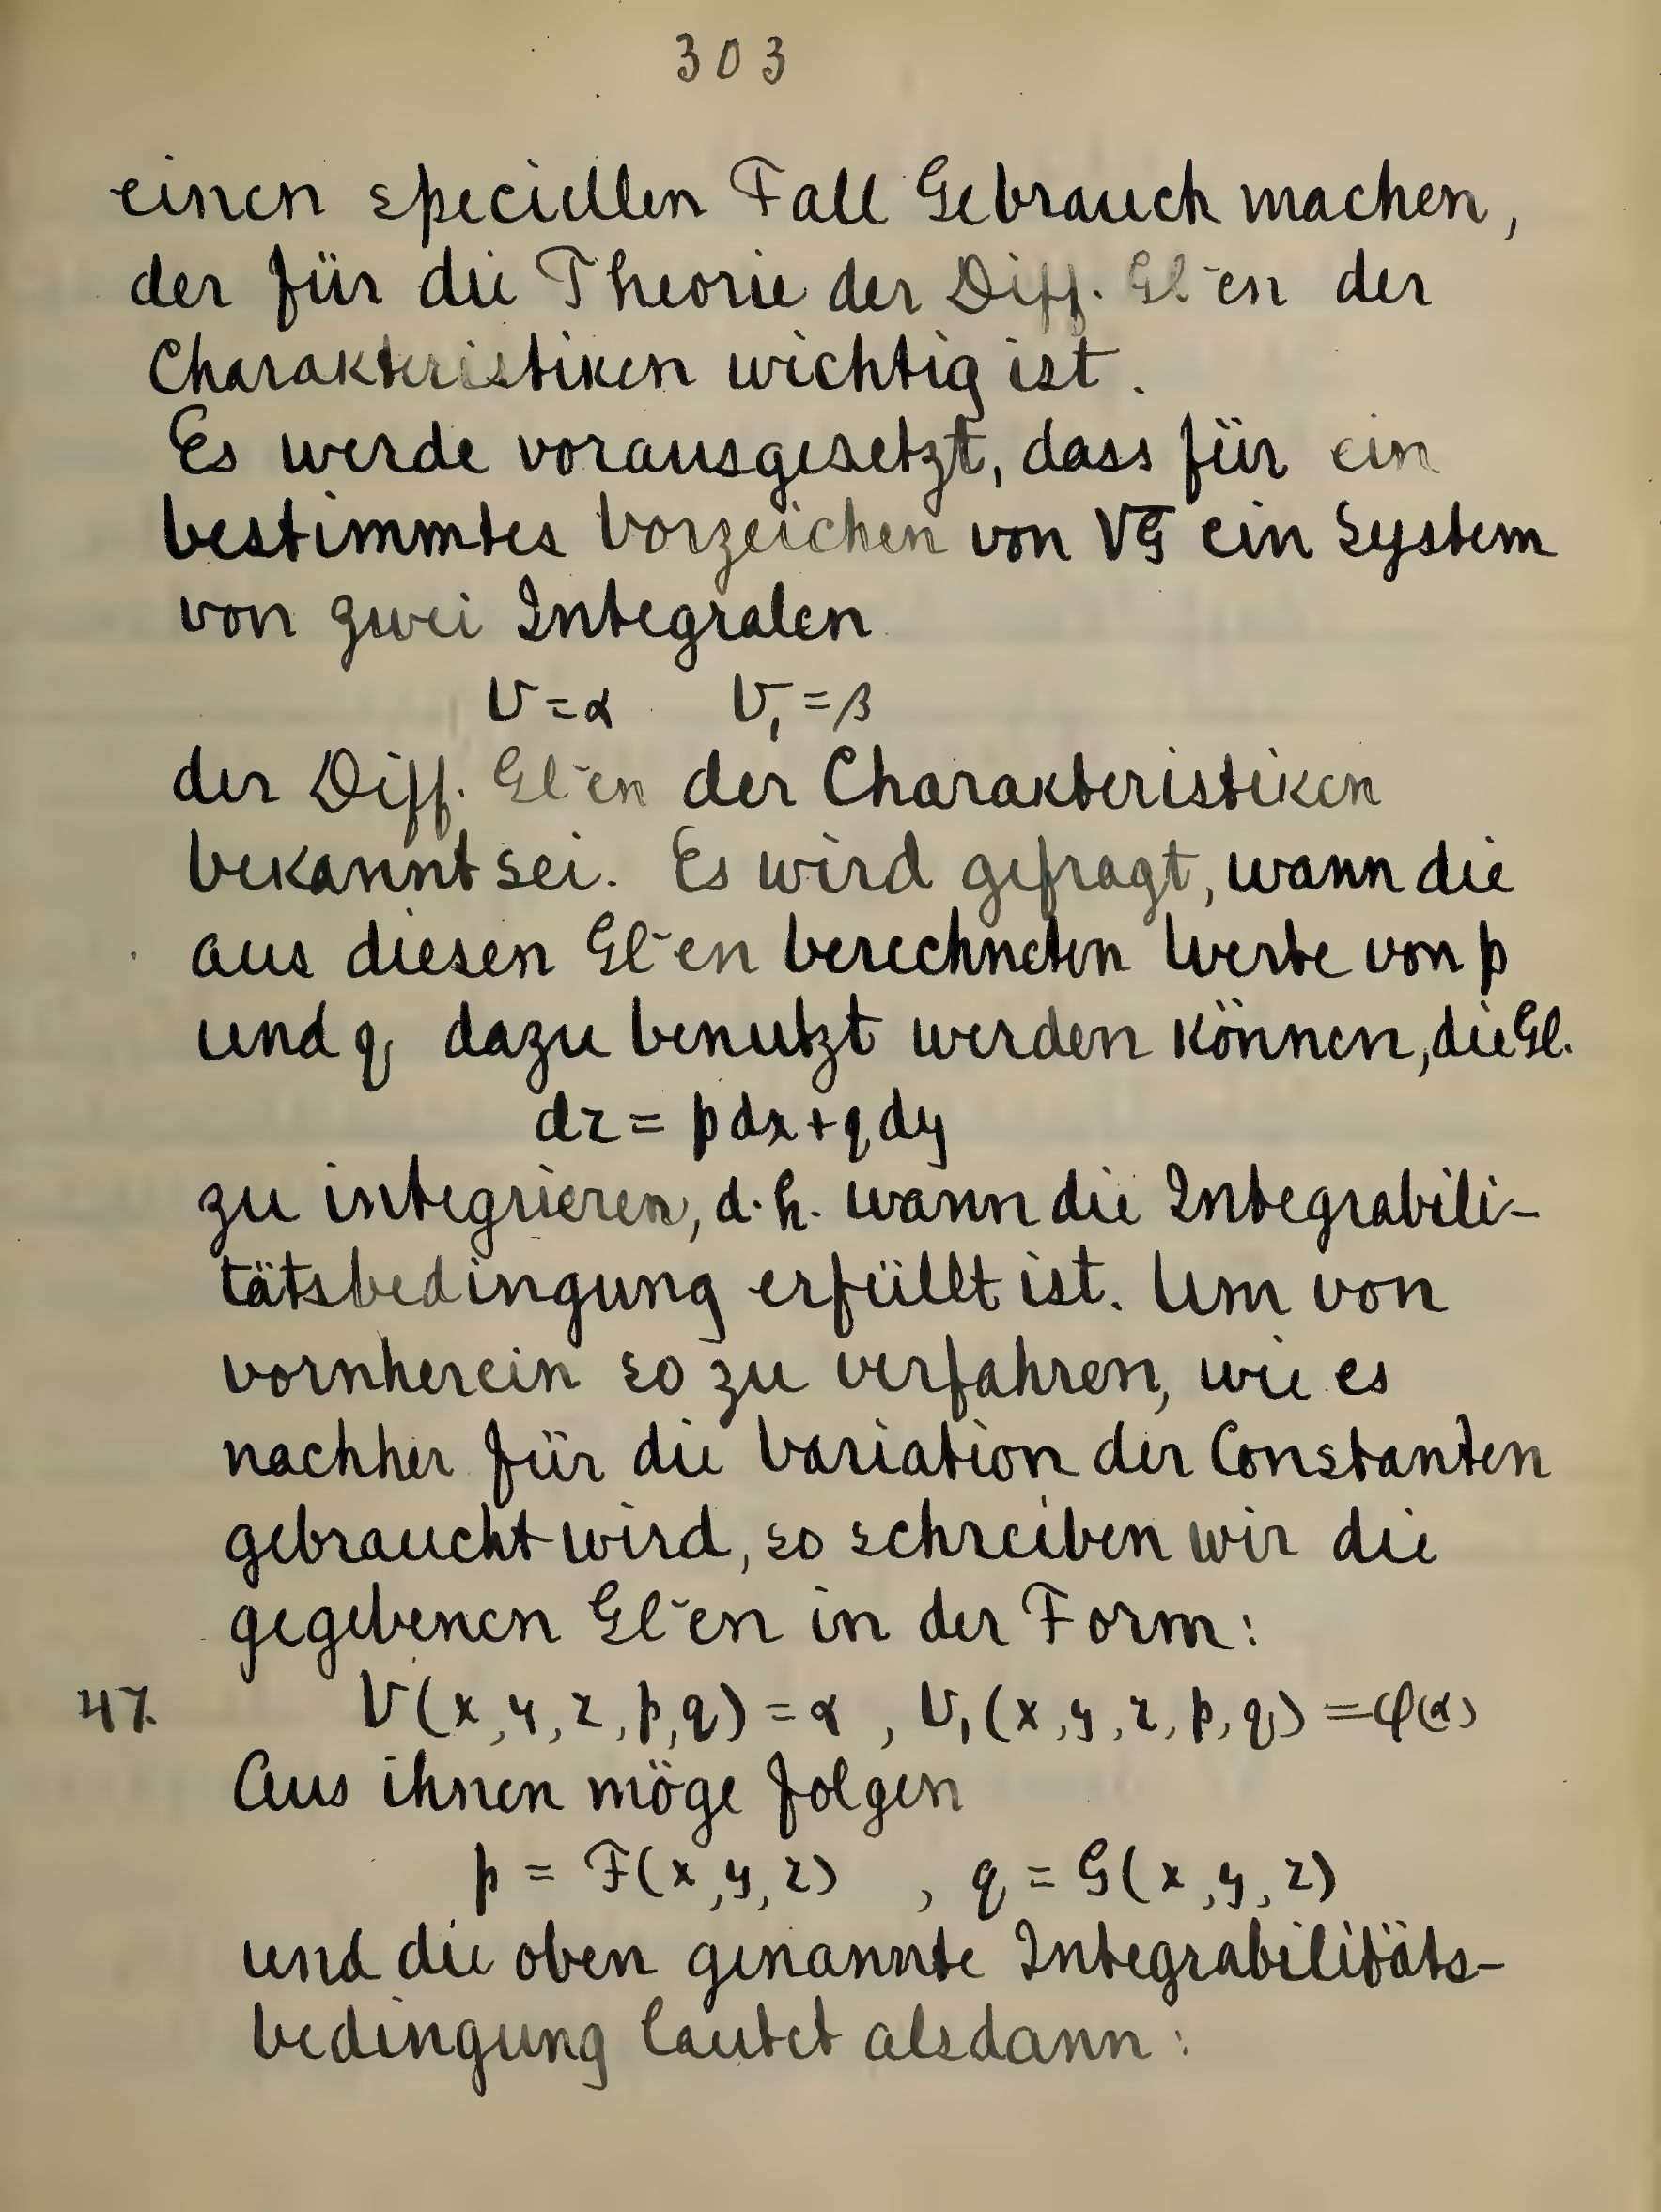 303
einen speciellen Fall Gebrauch machen,
der für die Theorie der Diff. Gl-en der
Charakteristiken wichtig ist.
Es werde vorausgesetzt, dass für ein
bestimmtes Vorzeichen von √G ein System
von zwei Integralen
V=α V₁=β
der Diff. Gl-en der Charakteristiken
bekannt sei. Es wird gefragt, wann die
aus diesen Gl-en berechneten Werte von p
und q dazu benutzt werden können, die Gl.
dz = p dx + q dy
zu integrieren, d.h. wann die Integrabili-
tätsbedingung erfüllt ist. Um von
vornherein so zu verfahren, wie es
nachher für die Variation der Constanten
gebraucht wird, so schreiben wir die
gegebenen Gl-en in der Form:
47. V(x,y,z,p,q) = α , V₁(x,y,z,p,q) = φ(α)
Aus ihnen möge folgen
p = F(x,y,z) , q = G(x,y,z)
und die oben genannte Integrabilitäts-
bedingung lautet alsdann: